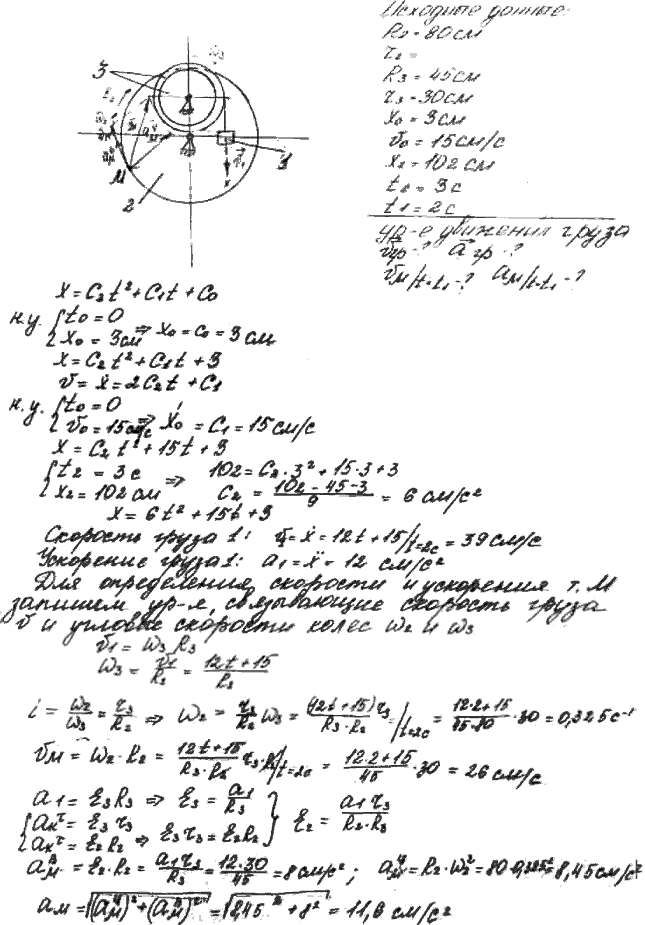 Исходные данные:
R₂ = 80 см
r₂ =
R₃ = 45 см
r₃ = 30 см
x₀ = 3 см
v₀ = 15 см/с
x₂ = 102 см
t₂ = 3 с
t₁ = 2 с
ур-е движения груза
v гр-? a гр-?
v м/t=t₁-? a м/t=t₁-?
3
M
2
1
x = C₂t² + C₁t + C₀
н.у. { t₀ = 0
x₀ = 3 см ⇒ x₀ = C₀ = 3 см
x = C₂t² + C₁t + 3
v = ẋ = 2C₂t + C₁
н.у. { t₀ = 0
v₀ = 15 см/с ⇒ ẋ₀ = C₁ = 15 см/с
x = C₂t² + 15t + 3
{ t₂ = 3 с ⇒ 102 = C₂·3² + 15·3 + 3
x₂ = 102 см C₂ = (102 - 45 - 3)/9 = 6 см/с²
x = 6t² + 15t + 3
Скорость груза 1: v₁ = ẋ = 12t + 15/t=2с = 39 см/с
Ускорение груза 1: a₁ = ẍ = 12 см/с²
Для определения скорости и ускорения т. М
запишем ур-я, связывающие скорость груза
v и угловые скорости колес ω₂ и ω₃
v₁ = ω₃ R₃
ω₃ = v₁/R₃ = (12t + 15)/R₃
i = ω₂/ω₃ = r₃/R₂ ⇒ ω₂ = r₃/R₂ ω₃ = (12t + 15)r₃/(R₃·R₂) /t=2с = (12·2 + 15)/(45·80) · 30 = 0,325 с⁻¹
vм = ω₂·R₂ = (12t + 15)/(R₃·R₂) r₃·R₂/t=2с = (12·2 + 15)/45 · 30 = 26 см/с
a₁ = ε₃R₃ ⇒ ε₃ = a₁/R₃
{ aкᵗ = ε₃ r₃
aкᵗ = ε₂R₂ ⇒ ε₃r₃ = ε₂R₂ } ε₂ = a₁r₃/(R₂·R₃)
aмᵇ = ε₂·R₂ = a₁r₃/R₃ = 12·30/45 = 8 см/с²; aмᶣ = R₂·ω₂² = 80·0,325² = 8,45 см/с²
aм = √((aмᶣ)² + (aмᵇ)²) = √(8,45² + 8²) = 11,6 см/с²